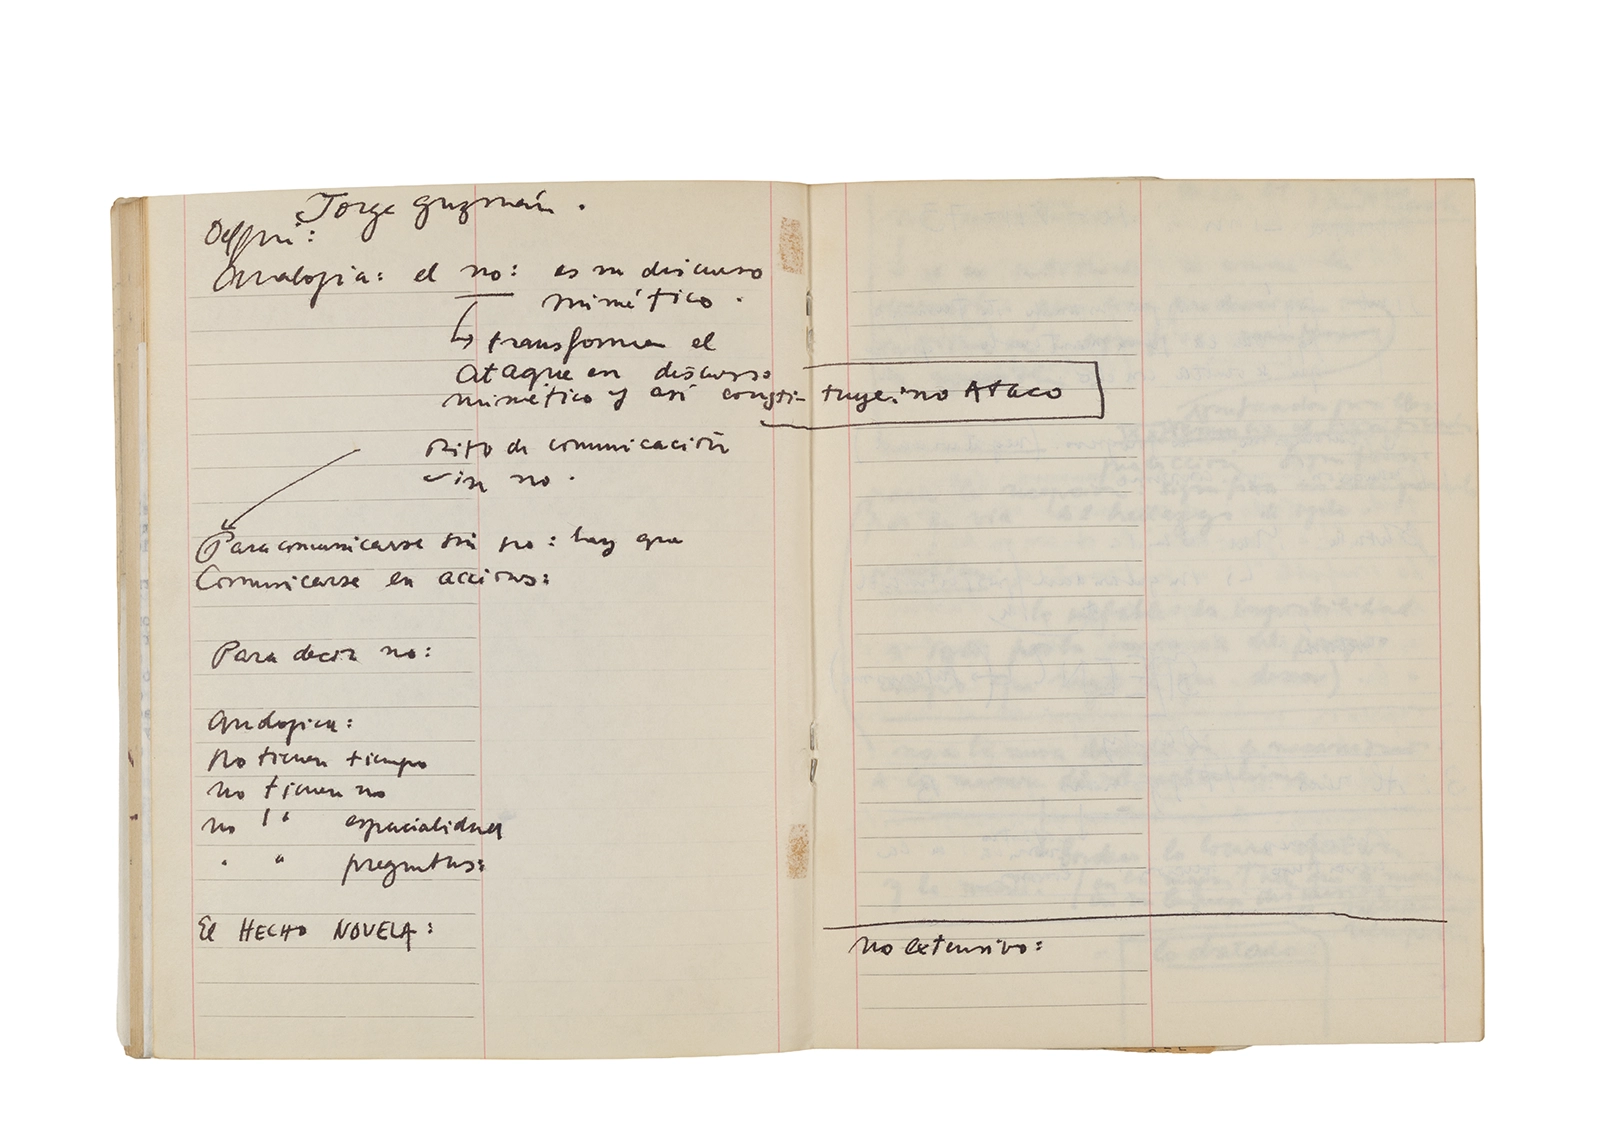 Jorge Guzmán.
Analogia: el no: es un discurso
mimético.
↳ transforman el
Ataque en discurso
mimético y así consti- tuye: no Ataco
Rito de comunicación
sin no.
Para comunicarse sin no: hay que
Comunicarse en acciones:
Para decir no:
Analogica:
No tienen tiempo
no tienen no
no " espacialidad
" " preguntas:
El HECHO NOVELA:
no extensivo: